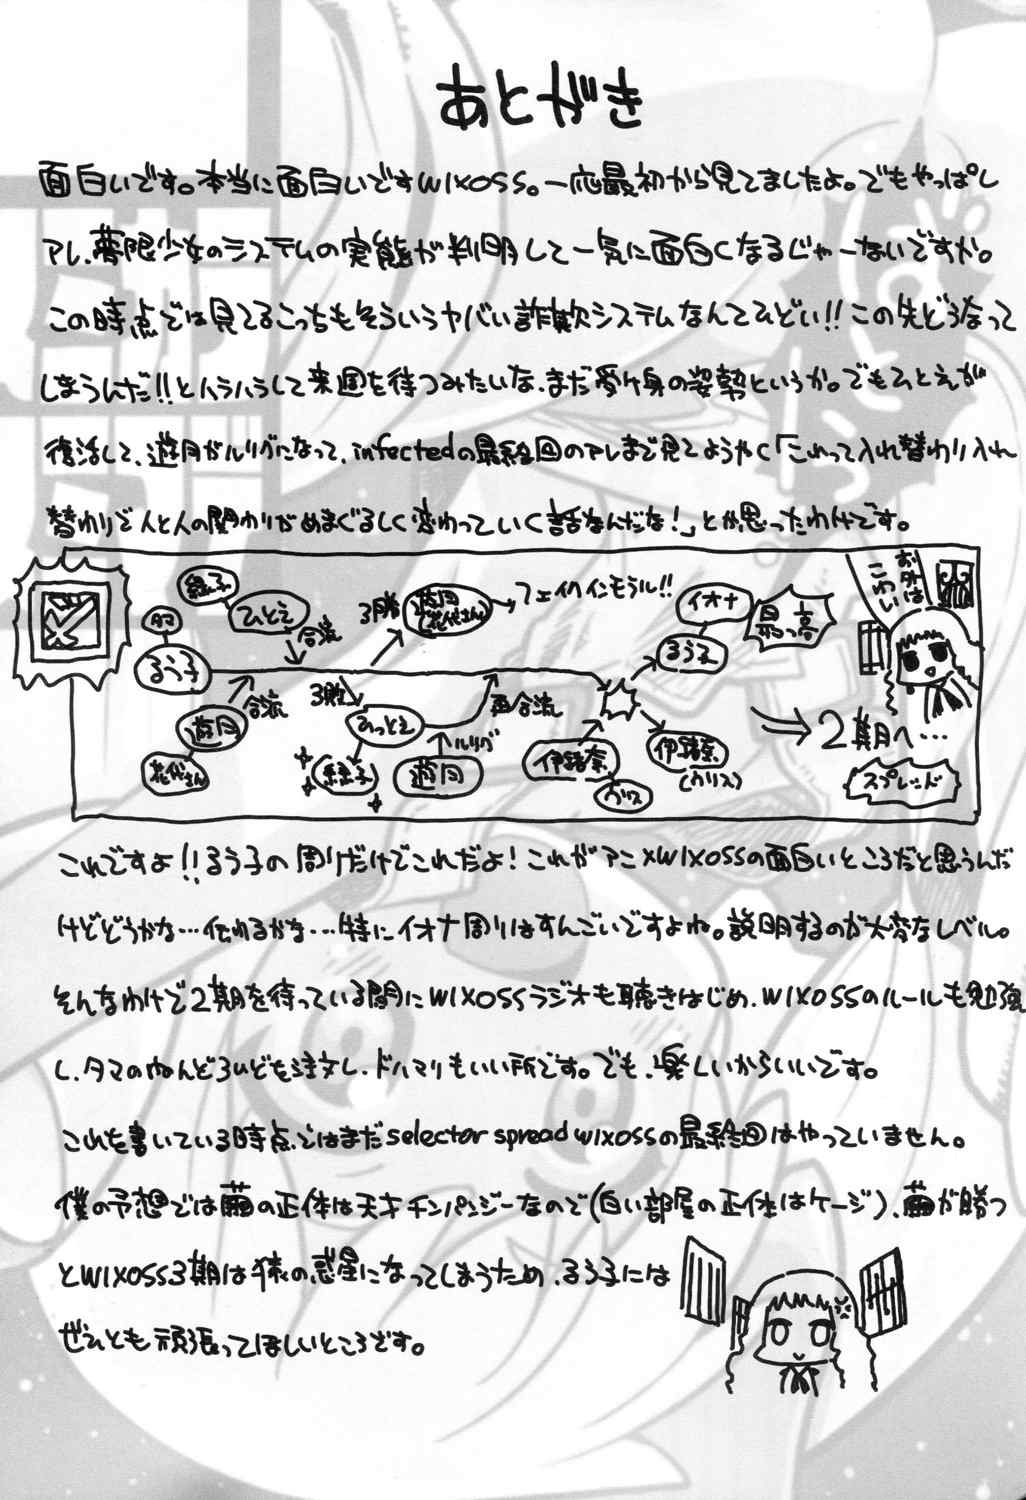 あとがき
面白いです。本当に面白いですWIXOSS。一応最初から見てましたよ。でもやっぱし
アレ、夢限少女のシステムの実態が判明して一気に面白くなるじゃーないですか。
この時点では見てるこっちもそういうヤバい詐欺システムなんてひどい!!この先どうなって
しまうんだ!!とハラハラして来週を待つみたいな、まだ受け身の姿勢というか。でもひとえが
復活して、遊月がルリグになって、infectedの最終回のアレまで見てようやく「これって入れ替わり入れ
替わりで人と人の関わりがめまぐるしく変わっていく話なんだな!」とか思ったわけです。
緑子
ひとえ
タマ
るう子
合流
3勝
遊月
(花代さん)
フェイクインモラル!!
イオナ
るう子
最っ高
お外は
こわい
遊月
花代さん
合流
3敗
ひとえ
緑子
ルリグ
遊月
再合流
伊緒奈
ウリス
伊緒奈
(ウリス)
2期へ…
スプレッド
これですよ!!るう子の周りだけでこれだよ!これがアニメWIXOSSの面白いところだと思うんだ
けどどうかな…伝わるかな…特にイオナ周りはすんごいですよね。説明するのが大変なレベル。
そんなわけで2期を待っている間にWIXOSSラジオも聴きはじめ、WIXOSSのルールも勉強
し、タマのねんどろいどを注文し、ドハマりもいい所です。でも、楽しいからいいです。
これを書いている時点ではまだselector spread wixossの最終回はやっていません。
僕の予想では繭の正体は天才チンパンジーなので(白い部屋の正体はケージ)、繭が勝つ
とWIXOSS3期は猿の惑星になってしまうため、るう子には
ぜひとも頑張ってほしいところです。